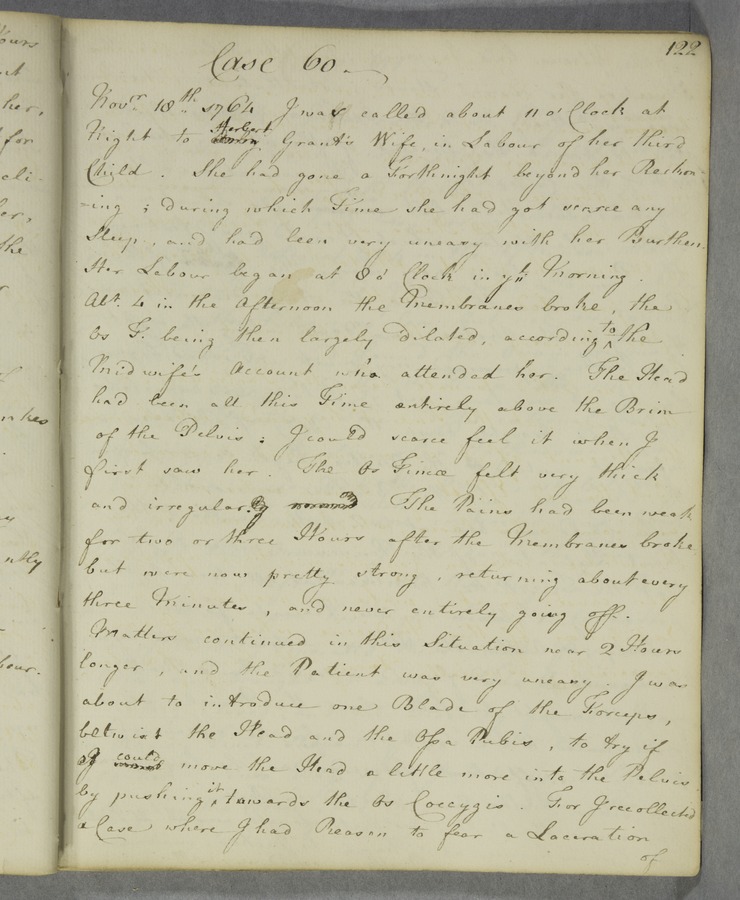 122
Case 60
Novr. 18th. 1764 I was called about 11 o'Clock at
Night to Herbert Grant's Wife, in Labour of her third
Child. She had gone a Forthnight beyond her Reckon-
-ing; during which Time she had got scarce any
Sleep, and had been very uneasy with her Burthen.
Her Labour began at 8 o'Clock in ye Morning.
Abt. 4 in the afternoon the Membranes broke, the
Os T. being then largely Dilated, according to the
Midwife's Account who attended her. The Head
had been all this Time entirely above the Brim
of the Pelvis: I could scarce feel it when I
first saw her. The Os Tincæ felt very thick
and irregular. The Pains had been weak
for two or three Hours after the Membranes broke
but were now pretty strong, returning about every
three Minutes, and never entirely going off.
Matters continued in this Situation near 2 Hours
longer, and the Patient was very uneasy. I was
about to introduce one Blade of the Forceps,
betwixt the Head and the Ossa Pubis, to try if
I could move the Head a little more into the Pelvis
by pushing it towards the Os Coccygis. For I recollected
a Case where I had Reason to fear a Laceration
of
ours
her,
for
the